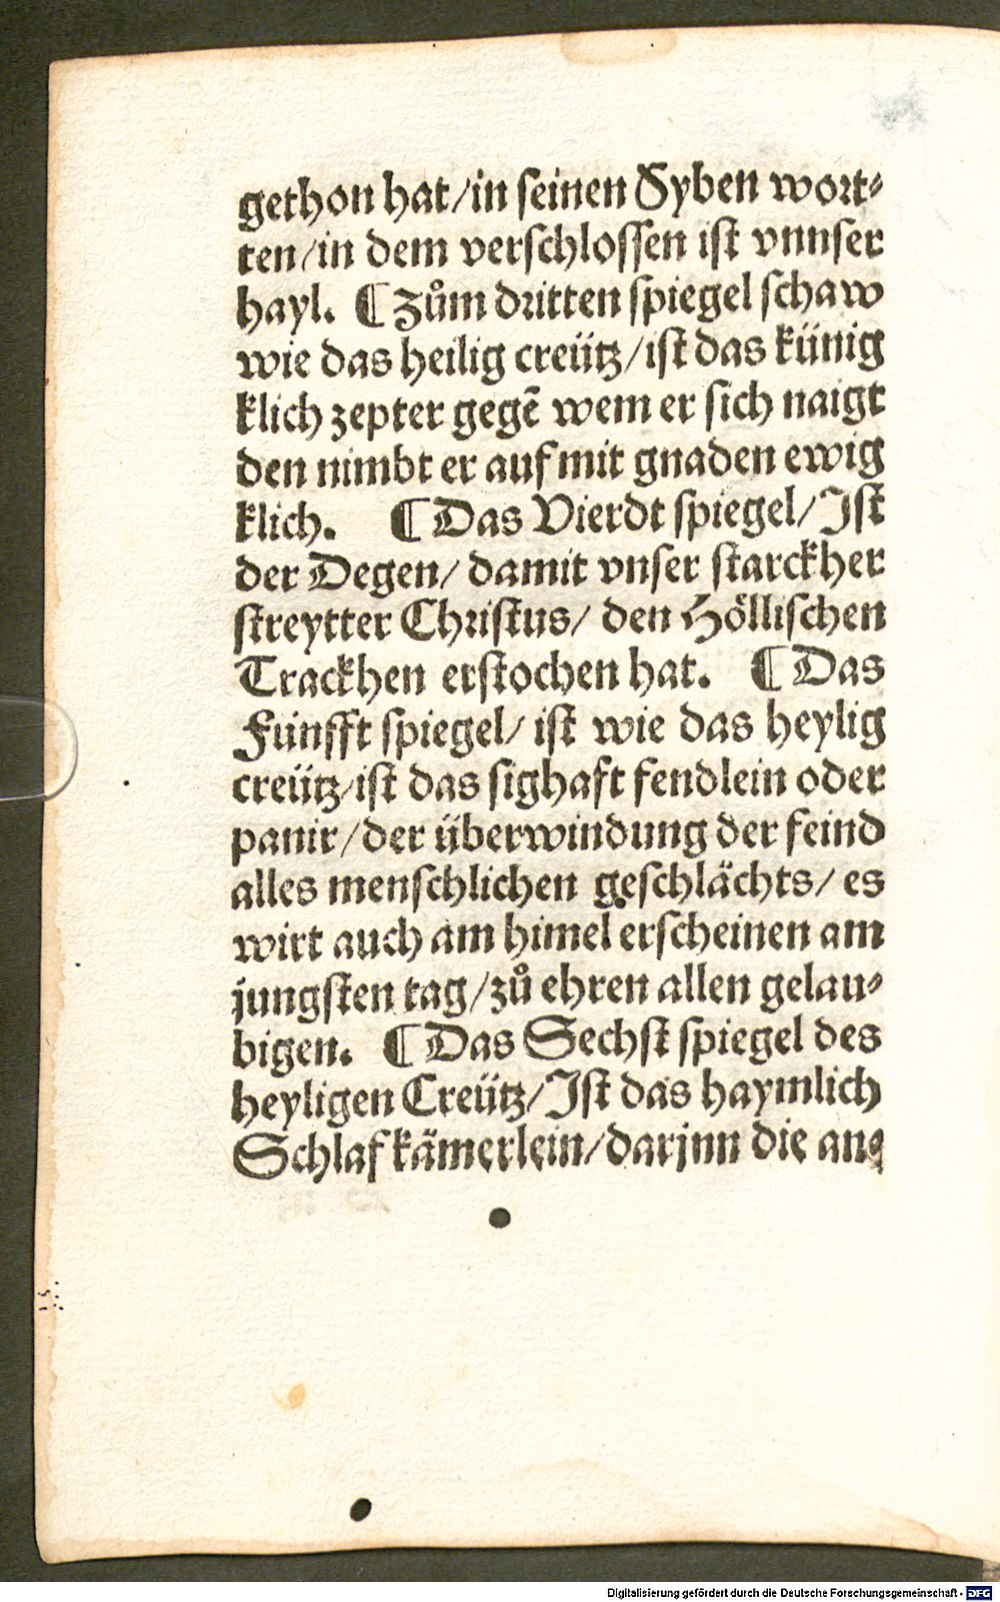 gethon hat/in seinen Syben wort⸗
ten/in dem verschlossen ist vnnser
hayl. ¶ Zům dritten spiegel schaw
wie das heilig creütz/ist das künig
klich zepter gegē wem er sich naigt
den nimbt er auf mit gnaden ewig
klich. ¶ Das Vierdt spiegel/Ist
der Degen/ damit vnser starckher
streytter Christus/ den Höllischen
Trackhen erstochen hat. ¶ Das
Fünfft spiegel/ ist wie das heylig
creütz/ist das sighaft fendlein oder
panir/der überwindung der feind
alles menschlichen geschlächts/ es
wirt auch am himel erscheinen am
jungsten tag/zů ehren allen gelau⸗
bigen. ¶ Das Sechst spiegel des
heyligen Creütz/Ist das haymlich
Schlafkämerlein/darjnn die an⸗
Digitalisierung gefördert durch die Deutsche Forschungsgemeinschaft - DFG